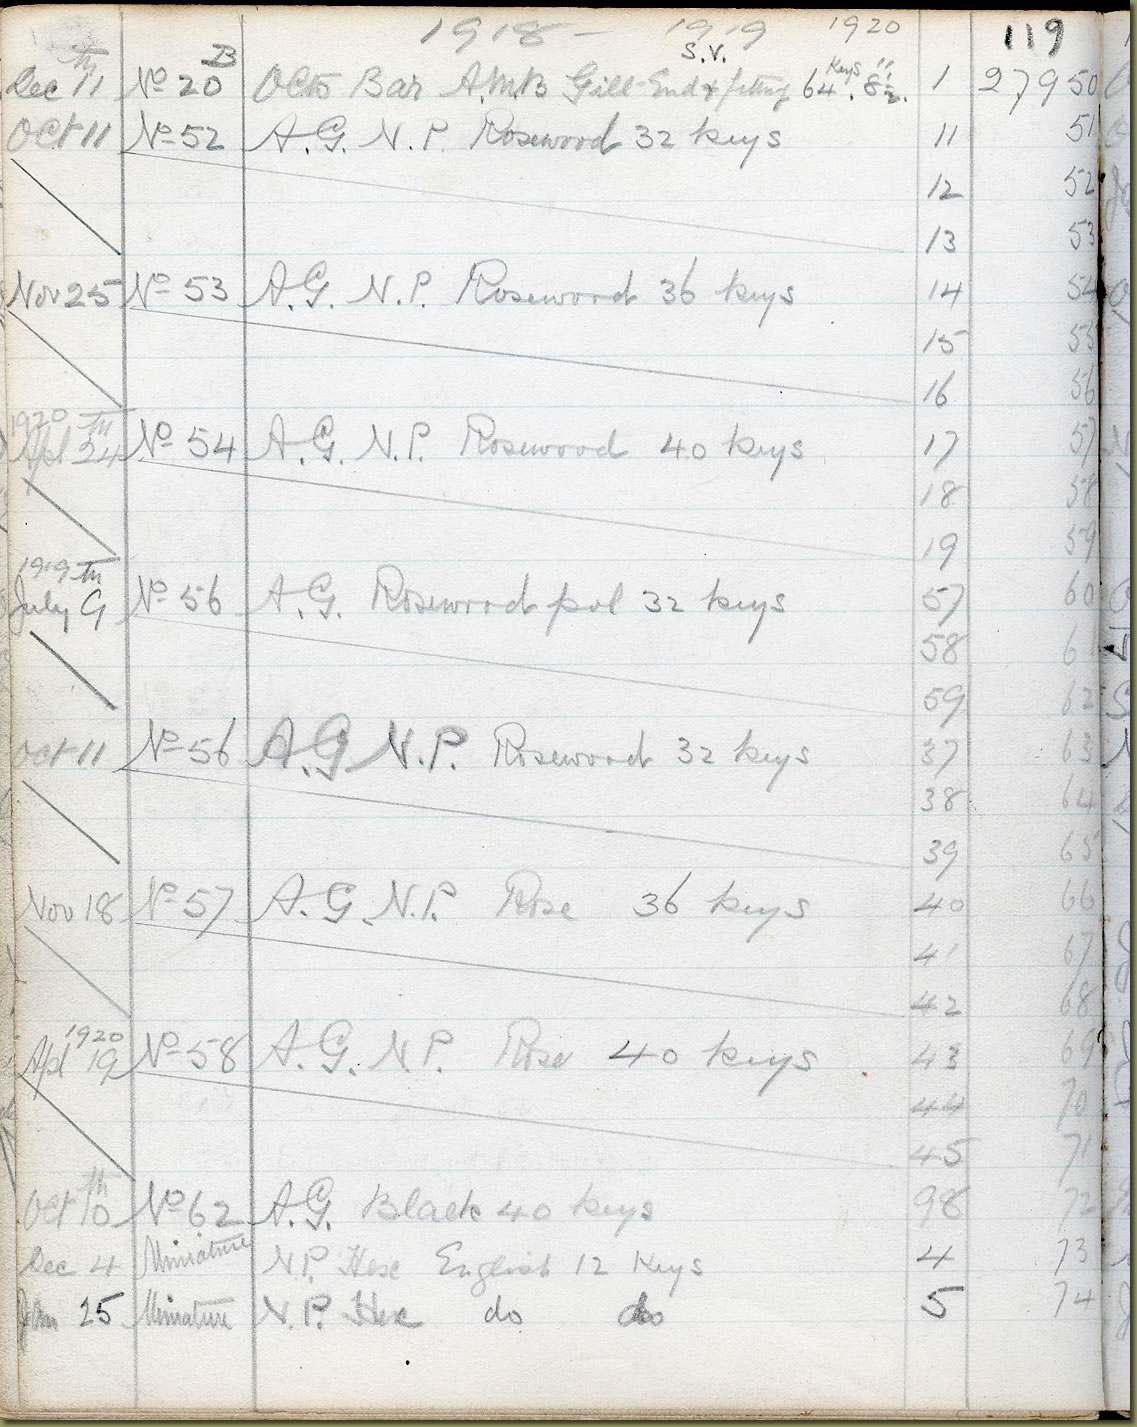 1918 – 1919 1920 119
Dec 11th No 20 B Octo Bar A.M.B Gill-End & fitting S.V. 64 Keys. 8½". 1 27950
Oct 11 No 52 A.G. N.P. Rosewood 32 keys 11 51
12 52
13 53
Nov 25 No 53 A.G. N.P. Rosewood 36 keys 14 54
15 55
16 56
1920 Apl 24th No 54 A.G. N.P. Rosewood 40 keys 17 57
18 58
19 59
1919 July 9th No 56 A.G. Rosewood pol 32 keys 57 60
58 61
59 62
Oct 11 No 56 A.G N.P. Rosewood 32 keys 37 63
38 64
39 65
Nov 18 No 57 A.G. N.P. Rose 36 keys 40 66
41 67
42 68
1920 Apl 19 No 58 A.G. N.P. Rose 40 keys 43 69
44 70
45 71
Oct 10th No 62 A.G. Black 40 keys 98 72
Dec 4 Miniature N.P. Hex English 12 Keys 4 73
Jan 25 Miniature N.P. Hex do do 5 74